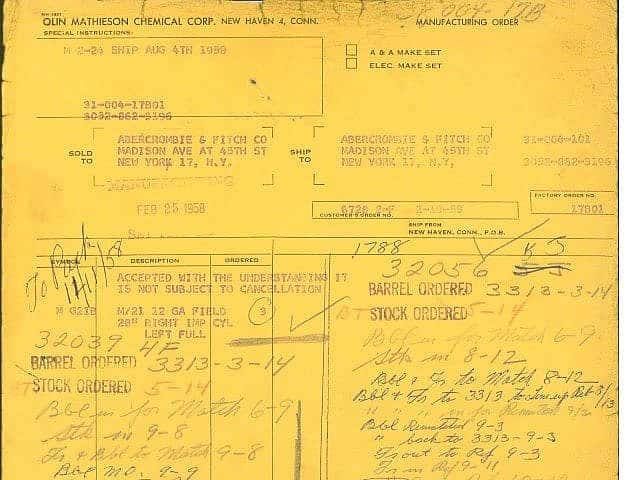 OLIN MATHIESON CHEMICAL CORP. NEW HAVEN 4, CONN.
MANUFACTURING ORDER
SPECIAL INSTRUCTIONS:
M 2-24 SHIP AUG 4TH 1958
A & A MAKE SET
ELEC. MAKE SET
31-004-17801
3052-862-3196
SOLD TO
ABERCROMBIE & FITCH CO
MADISON AVE AT 45TH ST
NEW YORK 17, N.Y.
SHIP TO
ABERCROMBIE & FITCH CO
MADISON AVE AT 45TH ST
NEW YORK 17, N.Y.
31-004-101
3052-862-3196
MANUFACTURING
FEB 25 1958
6728 2-F
2-19-58
CUSTOMER'S ORDER NO.
FACTORY ORDER NO.
17801
SHIP FROM
NEW HAVEN, CONN., F.O.B.
1788
K S
SYMBOL
DESCRIPTION
ORDERED
To
11/11/58
ACCEPTED WITH THE UNDERSTANDING IT
IS NOT SUBJECT TO CANCELLATION
M/21 12 GA FIELD
3
28" RIGHT IMP CYL
LEFT FULL
32039 4F
BARREL ORDERED 3313-3-14
STOCK ORDERED 5-14
Bbl in for Match 6-9
Stk in 9-8
Fr & Bbl to Match 9-8
Bbl 9-9
32056
BARREL ORDERED 3313-3-14
STOCK ORDERED 5-14
Bbl in for Match 6-9
Stk in 8-12
Bbl & Fr to Match 8-12
Bbl & Fr to 3313 to
" " " in for
Bbl 9-3
" back to 3313-9-3
Fr out to Rf 9-3
Fr in Rf 9-11